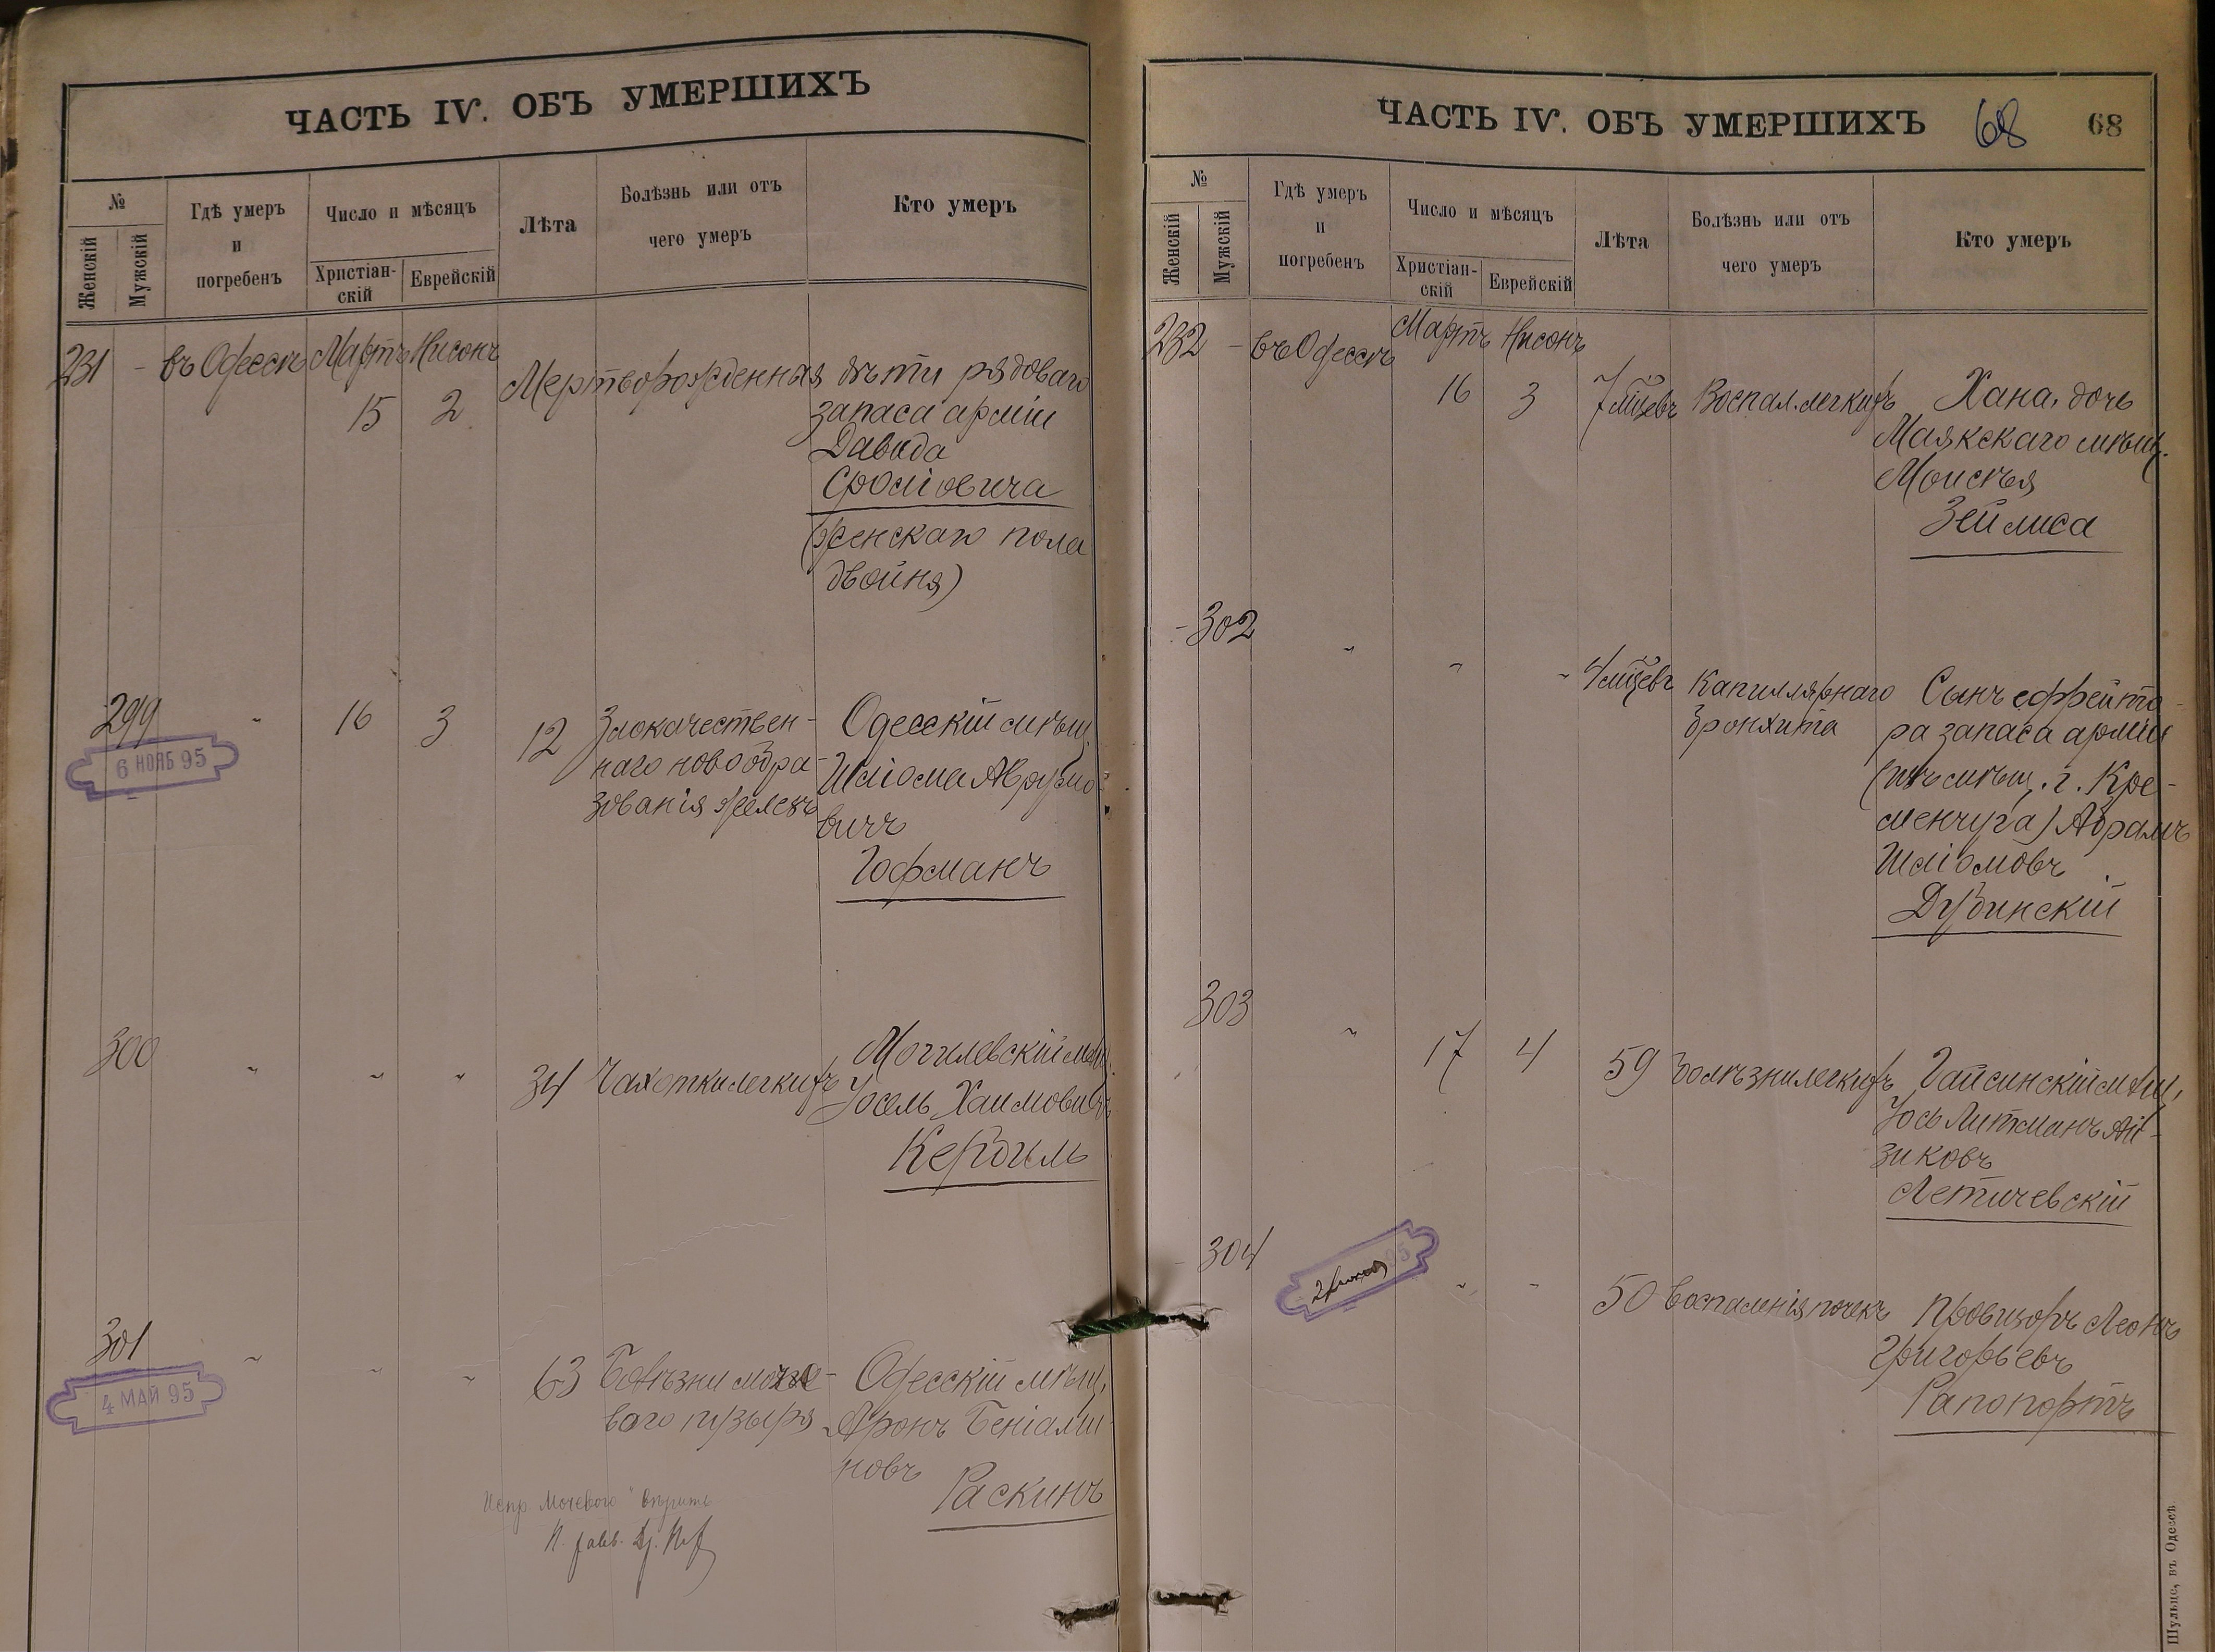 ЧАСТЬ IV. ОБЪ УМЕРШИХЪ
№
Женскій
Мужскій
Гдѣ умеръ
и
погребенъ
Число и мѣсяцъ
Христіан-
скій
Еврейскій
Лѣта
Болѣзнь или отъ
чего умеръ
Кто умеръ
231 - въ Одессѣ Мартъ Нисонъ
15 2 Мертворожденныя дѣти рядоваго
запаса арміи
Давида
(женскаго пола
двойня)
299 " 16 3 12 Злокачествен- Одесскій мѣщ.
наго новообра- Шліома Аврумо-
зованія железъ вичъ
Гофманъ
6 НОЯБ 95
300 " " " 34 Чахотки легкихъ Могилевскій мѣщ.
Іосель Хаимовичъ
Кербель
301 " " " 63 Болѣзни моче- Одесскій мѣщ.
ваго пузыря Аронъ Беніами-
новъ
Раскинъ
4 МАЙ 95
Испр. Мочеваго"
ЧАСТЬ IV. ОБЪ УМЕРШИХЪ 68 68
№
Женскій
Мужскій
Гдѣ умеръ
и
погребенъ
Число и мѣсяцъ
Христіан-
скій
Еврейскій
Лѣта
Болѣзнь или отъ
чего умеръ
Кто умеръ
232 - въ Одессѣ Мартъ Нисонъ
16 3 7 мѣсяцевъ Воспал. легкихъ Хана, дочь
Маякскаго мѣщ.
Моисѣя
Зейлиса
- 302 " " " 4 мѣсяцевъ Капиллярнаго Сынъ ефрейто-
бронхита ра запаса арміи
(изъ мѣщ. г. Кре-
менчуга) Абрамъ
Шліомовъ
Дубинскій
303 " 17 4 59 Болѣзни легкихъ Гайсинскій мѣщ.
Іось Литманъ Ай-
зиковъ
Летичевскій
304 95 " " 50 Воспаленія почекъ Провизоръ Леонъ
Григорьевъ
Рапопортъ
Шульце, въ Одессѣ.